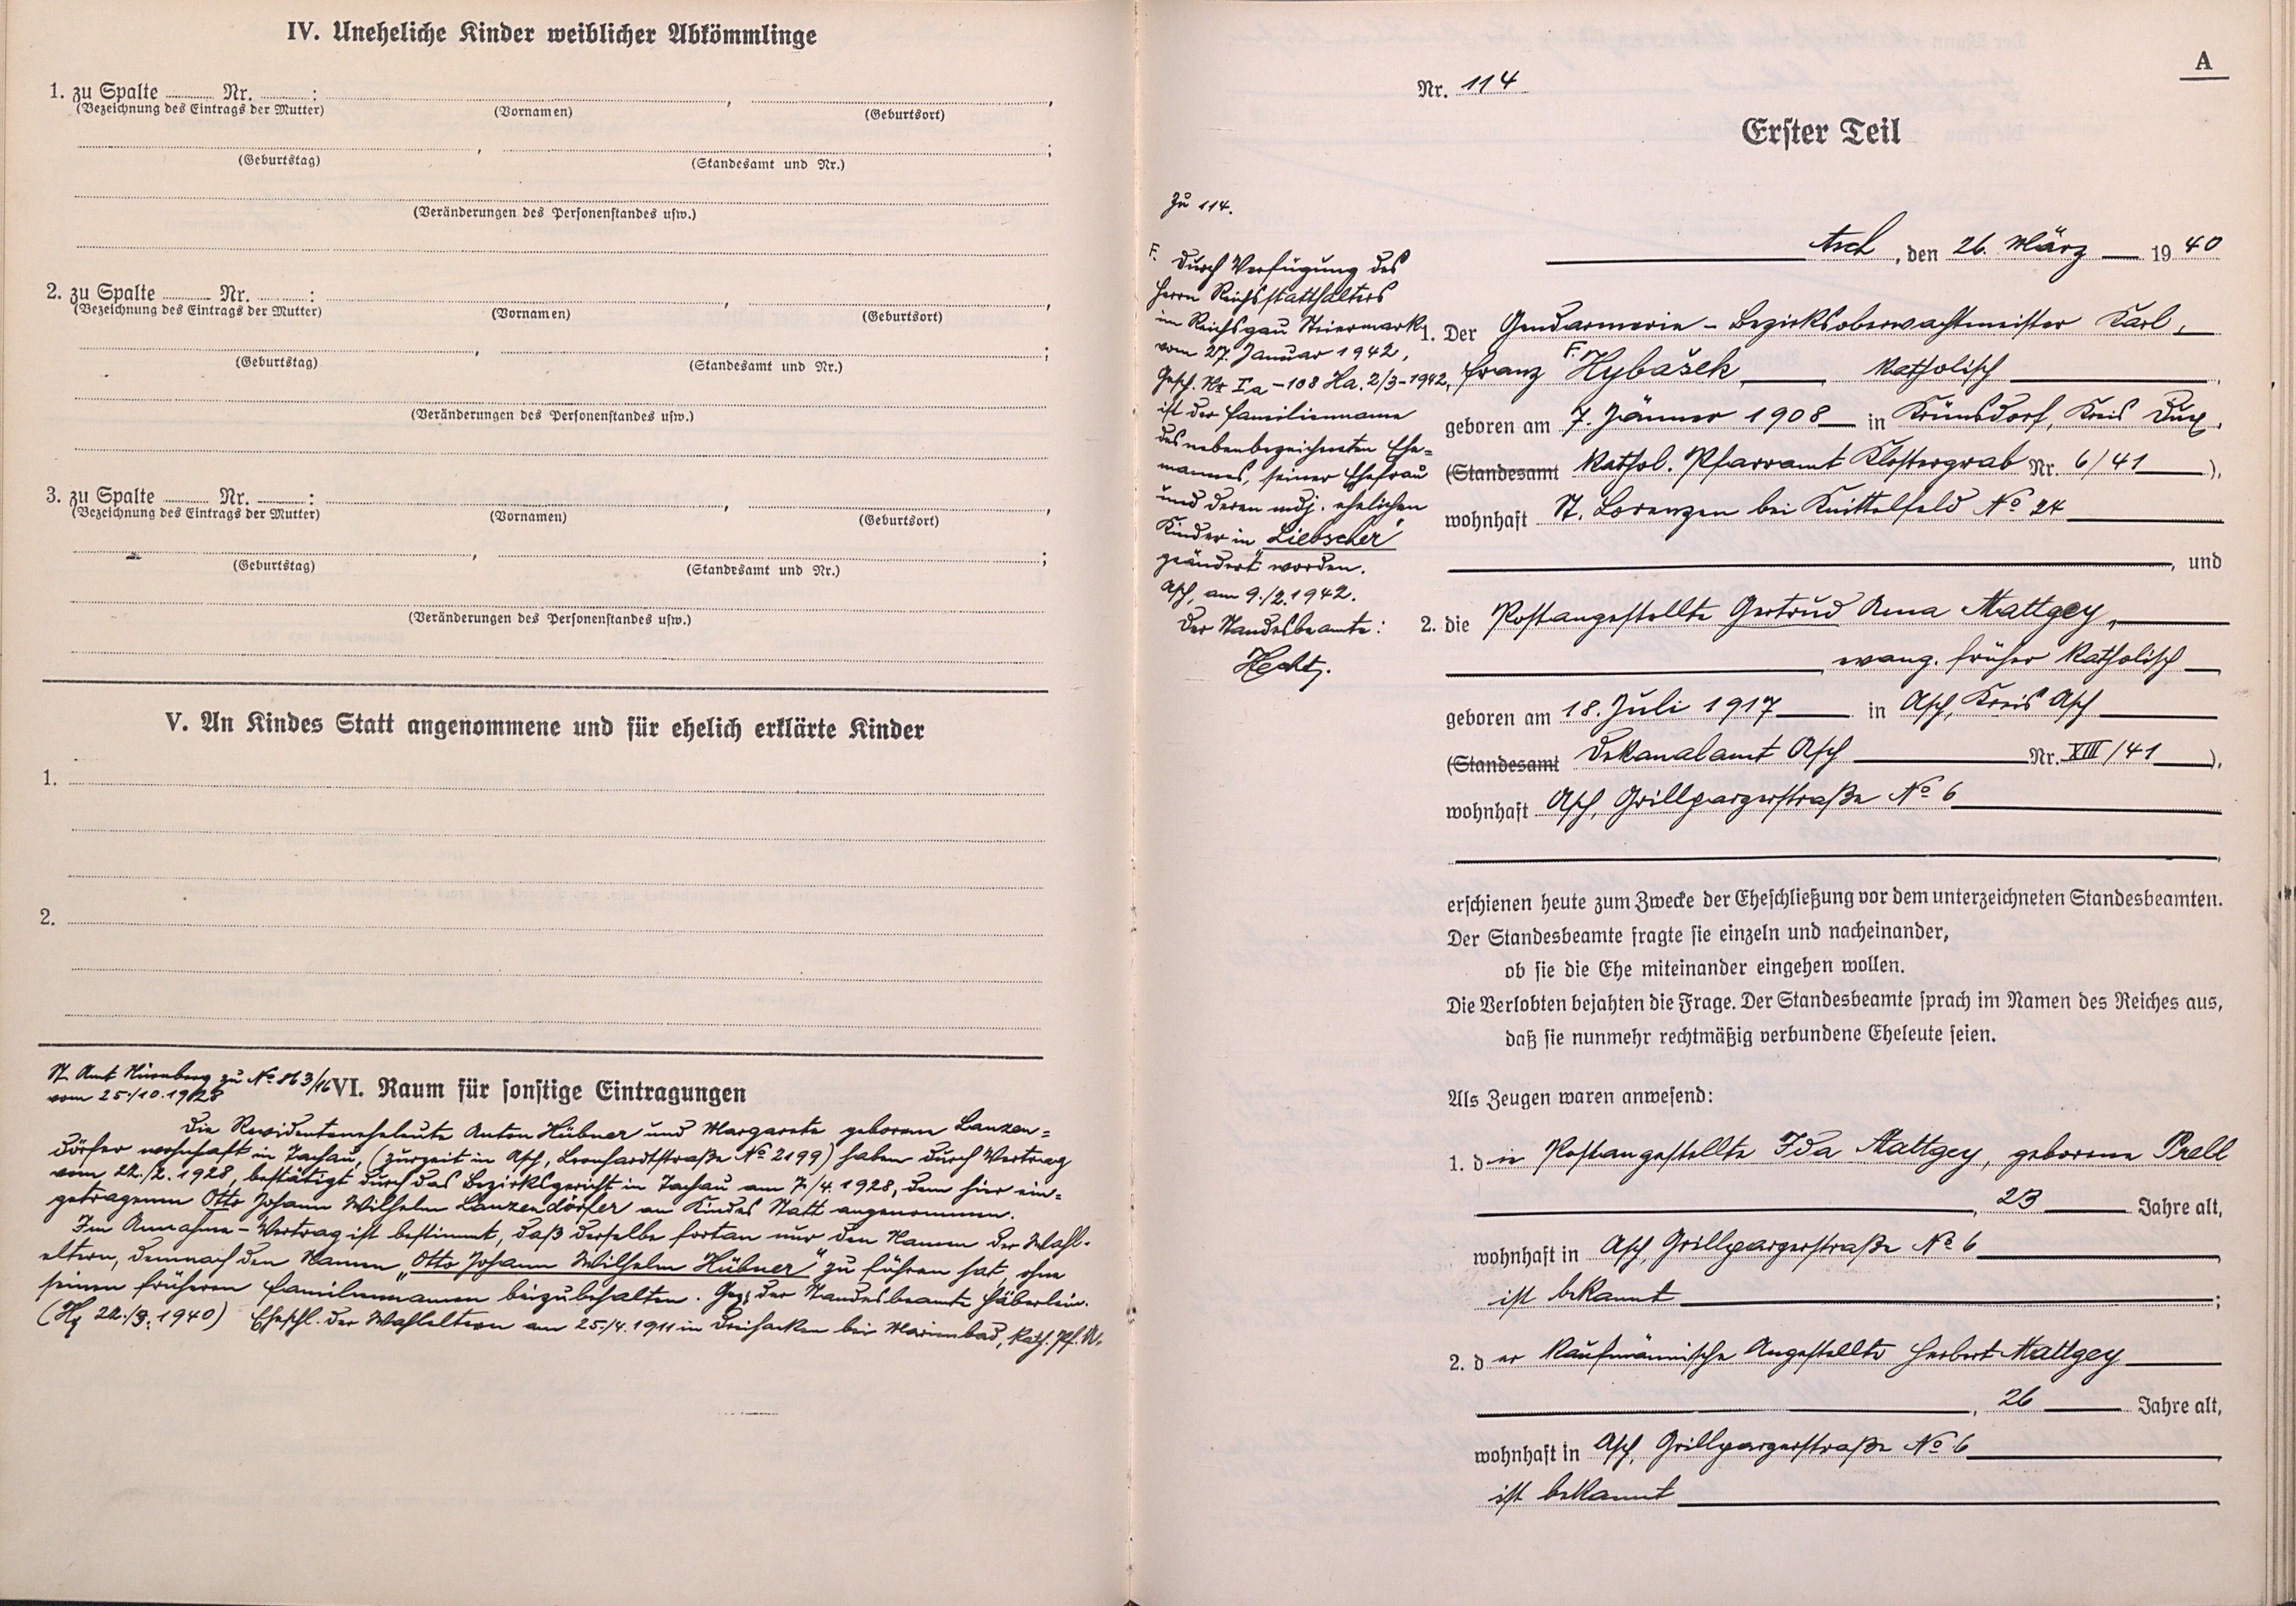 IV. Uneheliche Kinder weiblicher Abkömmlinge
1. zu Spalte ........ Nr. ........ :
(Bezeichnung des Eintrags der Mutter) (Vornamen) (Geburtsort)
(Geburtstag) (Standesamt und Nr.)
(Veränderungen des Personenstandes usw.)
2. zu Spalte ........ Nr. ........ :
(Bezeichnung des Eintrags der Mutter) (Vornamen) (Geburtsort)
(Geburtstag) (Standesamt und Nr.)
(Veränderungen des Personenstandes usw.)
3. zu Spalte ........ Nr. ........ :
(Bezeichnung des Eintrags der Mutter) (Vornamen) (Geburtsort)
(Geburtstag) (Standesamt und Nr.)
(Veränderungen des Personenstandes usw.)
V. An Kindes Statt angenommene und für ehelich erklärte Kinder
1.
2.
St. Amt Nürnberg zu No 863/16
vom 25./10.1928
VI. Raum für sonstige Eintragungen
Die Revidentenseheleute Anton Hübner und Margarete geborene Lanzen=
dörfer wohnhaft in Tachau, (zurzeit in Asch, Leonhardtstraße No 2199) haben durch Vertrag
vom 22./2.1928, bestätigt durch das Bezirksgericht in Tachau am 7./4.1928, den hier ein=
getragenen Otto Johann Wilhelm Lanzendörfer an Kindes Statt angenommen.
Im Annahme-Vertrag ist bestimmt, daß derselbe fortan nur den Namen der Wahl-
eltern, demnach den Namen „Otto Johann Wilhelm Hübner" zu führen hat, ohne
seinen früheren Familiennamen beizubehalten. Gez: der Standesbeamte Häberlein.
22./3.1940) Eheschl. der Wahleltern am 25./4.1911 in Dreihacken bei Marienbad, kath. Pf. A.
A
Nr. 114
Erster Teil
Zu 114.
F. Durch Verfügung des
Herrn Reichsstatthalters
im Reichsgau Steiermark
vom 27. Januar 1942,
Gesch. Nr Ia-108 Ha. 2/3-1942,
ist der Familienname
des nebenbezeichneten Ehe=
mannes, seiner Ehefrau
und deren mdj. ehelichen
Kinder in „Liebscher"
geändert worden.
Asch, am 9./2.1942.
Der Standesbeamte:
Asch, den 26. März 19 40
1. Der Gendarmerie-Bezirksoberwachtmeister Karl,
Franz F. Hybašek, katholisch
geboren am 7. Jänner 1908 in Krünsdorf, Kreis Dux,
(Standesamt kathol. Pfarramt Klostergrab Nr. 6/41),
wohnhaft St. Lorenzen bei Knittelfeld No 24
, und
2. die Postangestellte Gertrud Anna Mattgey,
evang. früher katholisch
geboren am 18. Juli 1917 in Asch, Kreis Asch
(Standesamt Dekanalamt Asch Nr. XIII/41),
wohnhaft Asch, Grillparzerstraße No 6
erschienen heute zum Zwecke der Eheschließung vor dem unterzeichneten Standesbeamten.
Der Standesbeamte fragte sie einzeln und nacheinander,
ob sie die Ehe miteinander eingehen wollen.
Die Verlobten bejahten die Frage. Der Standesbeamte sprach im Namen des Reiches aus,
daß sie nunmehr rechtmäßig verbundene Eheleute seien.
Als Zeugen waren anwesend:
1. die Postangestellte Ida Mattgey, geborene Prell
, 23 Jahre alt,
wohnhaft in Asch, Grillparzerstraße No 6
ist bekannt ;
2. der kaufmännische Angestellte Herbert Mattgey
, 26 Jahre alt,
wohnhaft in Asch, Grillparzerstraße No 6
ist bekannt